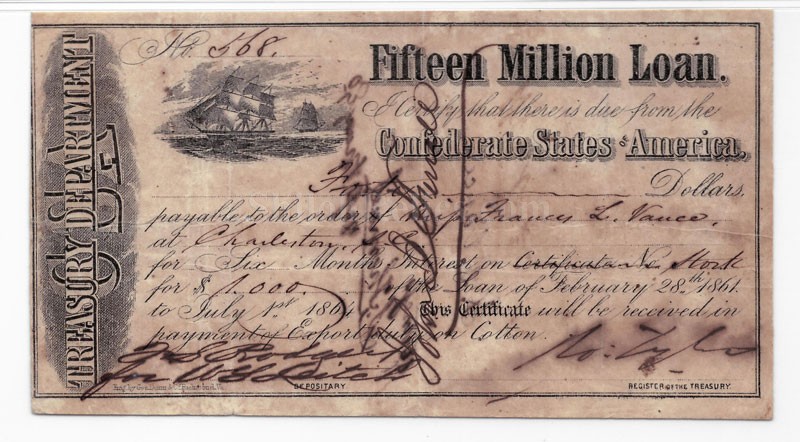 No. 568.
Fifteen Million Loan.
I Certify that there is due from the
Confederate States of America,
Forty Dollars,
payable to the order of Miss Frances L. Vance,
at Charleston, S.C.
for Six Months Interest on Certificate No. Stock
for $1,000 of the Loan of February 28th 1861.
to July 1st 1864 This Certificate will be received in
payment of Export duty on Cotton.
DEPOSITARY
REGISTER OF THE TREASURY.
TREASURY DEPARTMENT
CSA